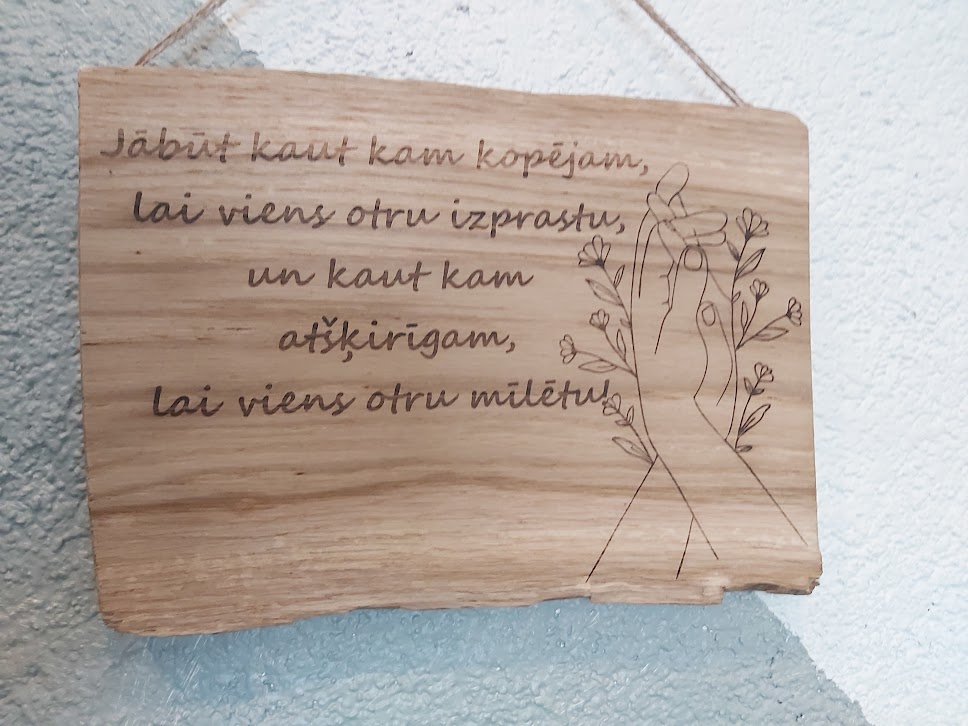 Jābūt kaut kam kopējam,
lai viens otru izprastu,
un kaut kam
atšķirīgam,
lai viens otru mīlētu!